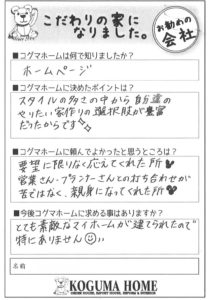 こだわりの家に
なりました。
お勧めの
会社
■コグマホームは何で知りましたか？
ホームページ
■コグマホームに決めたポイントは？
スタイルの多さの中から自分達の
やりたい家作りの選択肢が豊富
だったからです
■コグマホームに頼んでよかったと思うところは？
要望に限りなく応えてくれた所
営業さん・プランナーさんとの打ち合わせが
苦ではなく、親身になってくれた所
■今後コグマホームに求める事はありますか？
とても素敵なマイホームが建てられたので
特にありません
名前
KOGUMA HOME